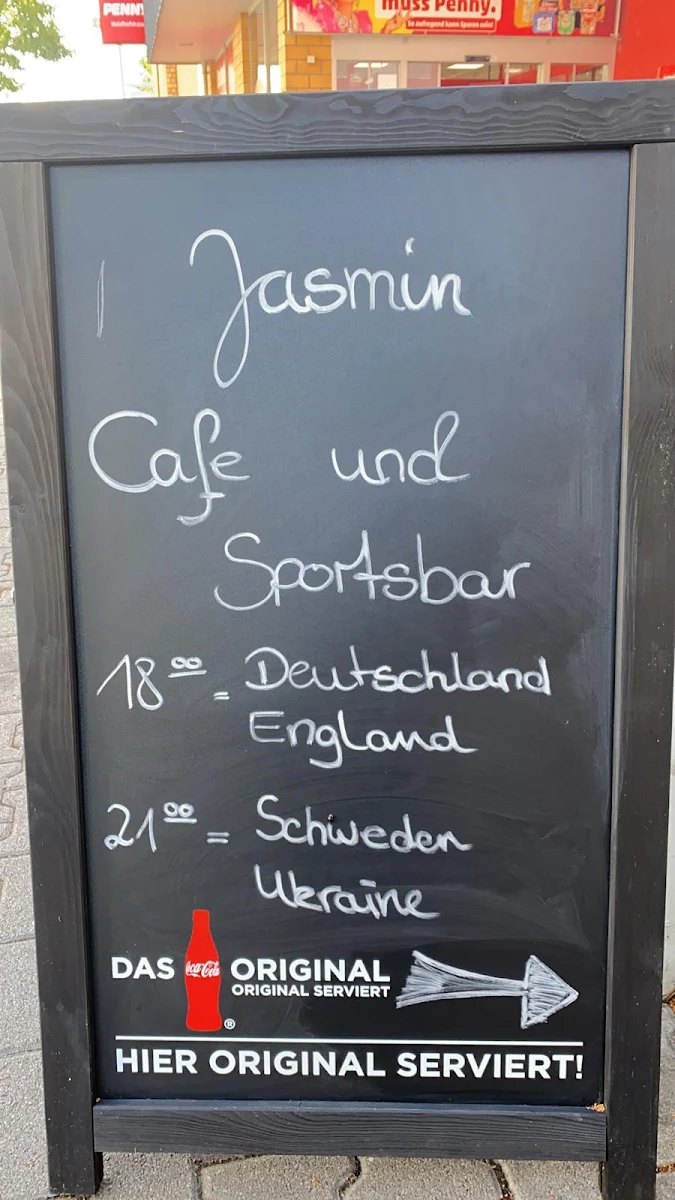 PENNY
muss Penny.
So aufregend kann Sparen sein!
Jasmin
Cafe und
Sportsbar
18⁰⁰ = Deutschland
England
21⁰⁰ = Schweden
Ukraine
DAS Coca-Cola ORIGINAL
ORIGINAL SERVIERT
®
HIER ORIGINAL SERVIERT!